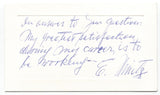 In answer to your question:
My greatest satisfaction
during my career, is to
be working –
E.